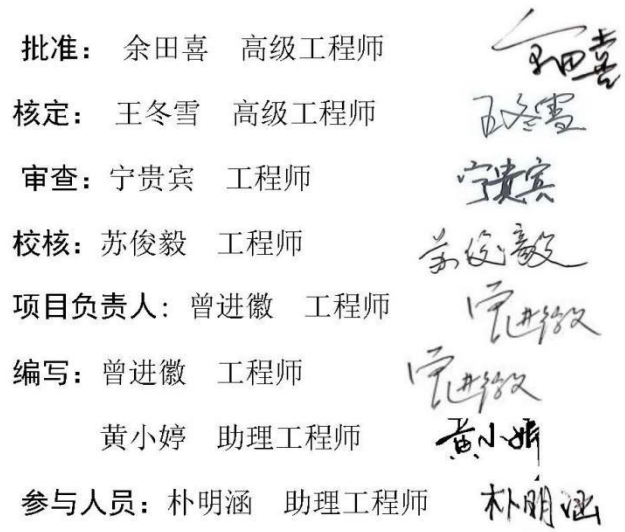 批准： 余田喜 高级工程师 余田喜
核定： 王冬雪 高级工程师 王冬雪
审查：宁贵宾 工程师 宁贵宾
校核：苏俊毅 工程师 苏俊毅
项目负责人：曾进徽 工程师 曾进徽
编写：曾进徽 工程师 曾进徽
黄小婷 助理工程师 黄小婷
参与人员：朴明涵 助理工程师 朴明涵